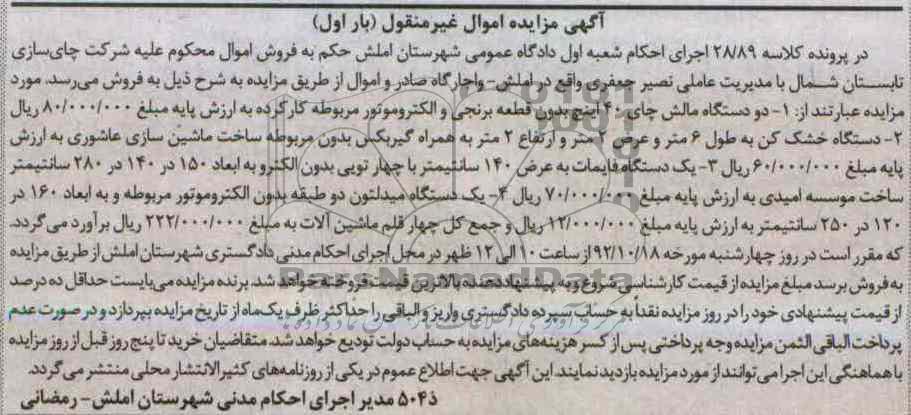 آگهی مزایده اموال غیرمنقول (بار اول)
در پرونده کلاسه ۲۸/۸۹ اجرای احکام شعبه اول دادگاه عمومی شهرستان املش حکم به فروش اموال محکوم علیه شرکت چای‌سازی
تابستان شمال با مدیریت عاملی نصیر جعفری واقع در املش- واجارگاه صادر و اموال از طریق مزایده به شرح ذیل به فروش می‌رسد. مورد
مزایده عبارتند از: ۱- دو دستگاه مالش چای ۴۰ اینچ بدون قطعه برنجی و الکتروموتور مربوطه کارکرده به ارزش پایه مبلغ ۸۰/۰۰۰/۰۰۰ ریال
۲- دستگاه خشک کن به طول ۶ متر و عرض ۲ متر و ارتفاع ۲ متر به همراه گیربکس بدون مربوطه ساخت ماشین سازی عاشوری به ارزش
پایه مبلغ ۶۰/۰۰۰/۰۰۰ ریال ۳- یک دستگاه فایمات به عرض ۱۴۰ سانتیمتر با چهار توپی بدون الکترو به ابعاد ۱۵۰ در ۱۴۰ در ۲۸۰ سانتیمتر
ساخت موسسه امیدی به ارزش پایه مبلغ ۷۰/۰۰۰/۰۰۰ ریال ۴- یک دستگاه میدلتون دو طبقه بدون الکتروموتور مربوطه و به ابعاد ۱۶۰ در
۱۲۰ در ۲۵۰ سانتیمتر به ارزش پایه مبلغ ۱۲/۰۰۰/۰۰۰ ریال و جمع کل چهار قلم ماشین آلات به مبلغ ۲۲۲/۰۰۰/۰۰۰ ریال برآورد می‌گردد.
که مقرر است در روز چهارشنبه مورخه ۹۲/۱۰/۱۸ از ساعت ۱۰ الی ۱۲ ظهر در محل اجرای احکام مدنی دادگستری شهرستان املش از طریق مزایده
به فروش برسد مبلغ مزایده از قیمت کارشناسی شروع و به پیشنهاددهنده بالاترین قیمت فروخته خواهد شد. برنده مزایده می‌بایست حداقل ده درصد
از قیمت پیشنهادی خود را در روز مزایده نقداً به حساب سپرده دادگستری واریز و الباقی را حداکثر ظرف یک‌ماه از تاریخ مزایده بپردازد و در صورت عدم
پرداخت الباقی الثمن مزایده وجه پرداختی پس از کسر هزینه‌های مزایده به حساب دولت تودیع خواهد شد. متقاضیان خرید تا پنج روز قبل از روز مزایده
با هماهنگی این اجرا می‌توانند از مورد مزایده بازدید نمایند. این آگهی جهت اطلاع عموم در یکی از روزنامه‌های کثیرالانتشار محلی منتشر می‌گردد.
ذ۵۰۴ مدیر اجرای احکام مدنی شهرستان املش- رمضانی
ParsNamadData